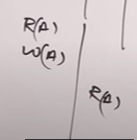 R(A)
W(A)
R(A)